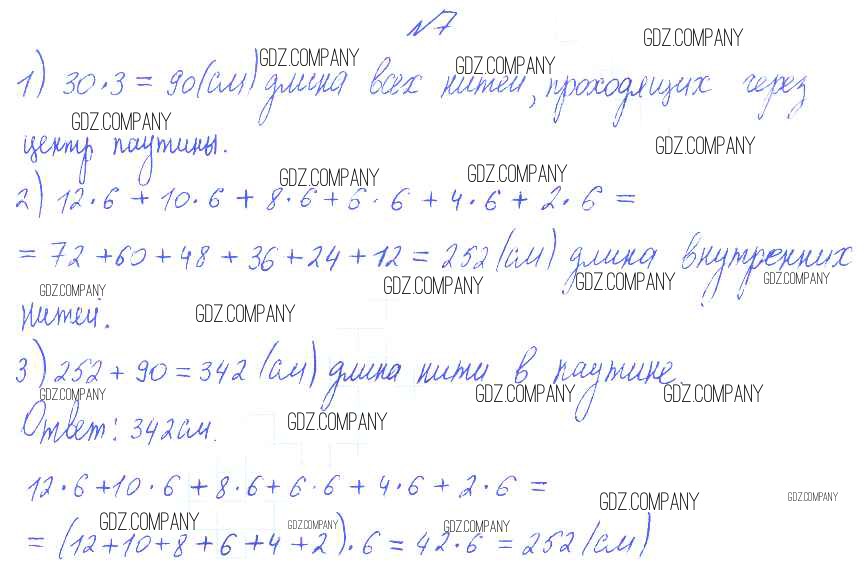 №7
GDZ.COMPANY
GDZ.COMPANY
GDZ.COMPANY
1) 30·3 = 90(см) длина всех нитей, проходящих через
GDZ.COMPANY
центр паутины.
GDZ.COMPANY
GDZ.COMPANY
GDZ.COMPANY
2) 12·6 + 10·6 + 8·6 + 6·6 + 4·6 + 2·6 =
= 72 + 60 + 48 + 36 + 24 + 12 = 252 (см) длина внутренних
GDZ.COMPANY
GDZ.COMPANY
GDZ.COMPANY
GDZ.COMPANY
нитей.
GDZ.COMPANY
3) 252 + 90 = 342 (см) длина нити в паутине.
GDZ.COMPANY
GDZ.COMPANY
GDZ.COMPANY
Ответ: 342см.
GDZ.COMPANY
12·6 + 10·6 + 8·6 + 6·6 + 4·6 + 2·6 =
GDZ.COMPANY
GDZ.COMPANY
GDZ.COMPANY
GDZ.COMPANY
GDZ.COMPANY
= (12 + 10 + 8 + 6 + 4 + 2)·6 = 42·6 = 252 (см)